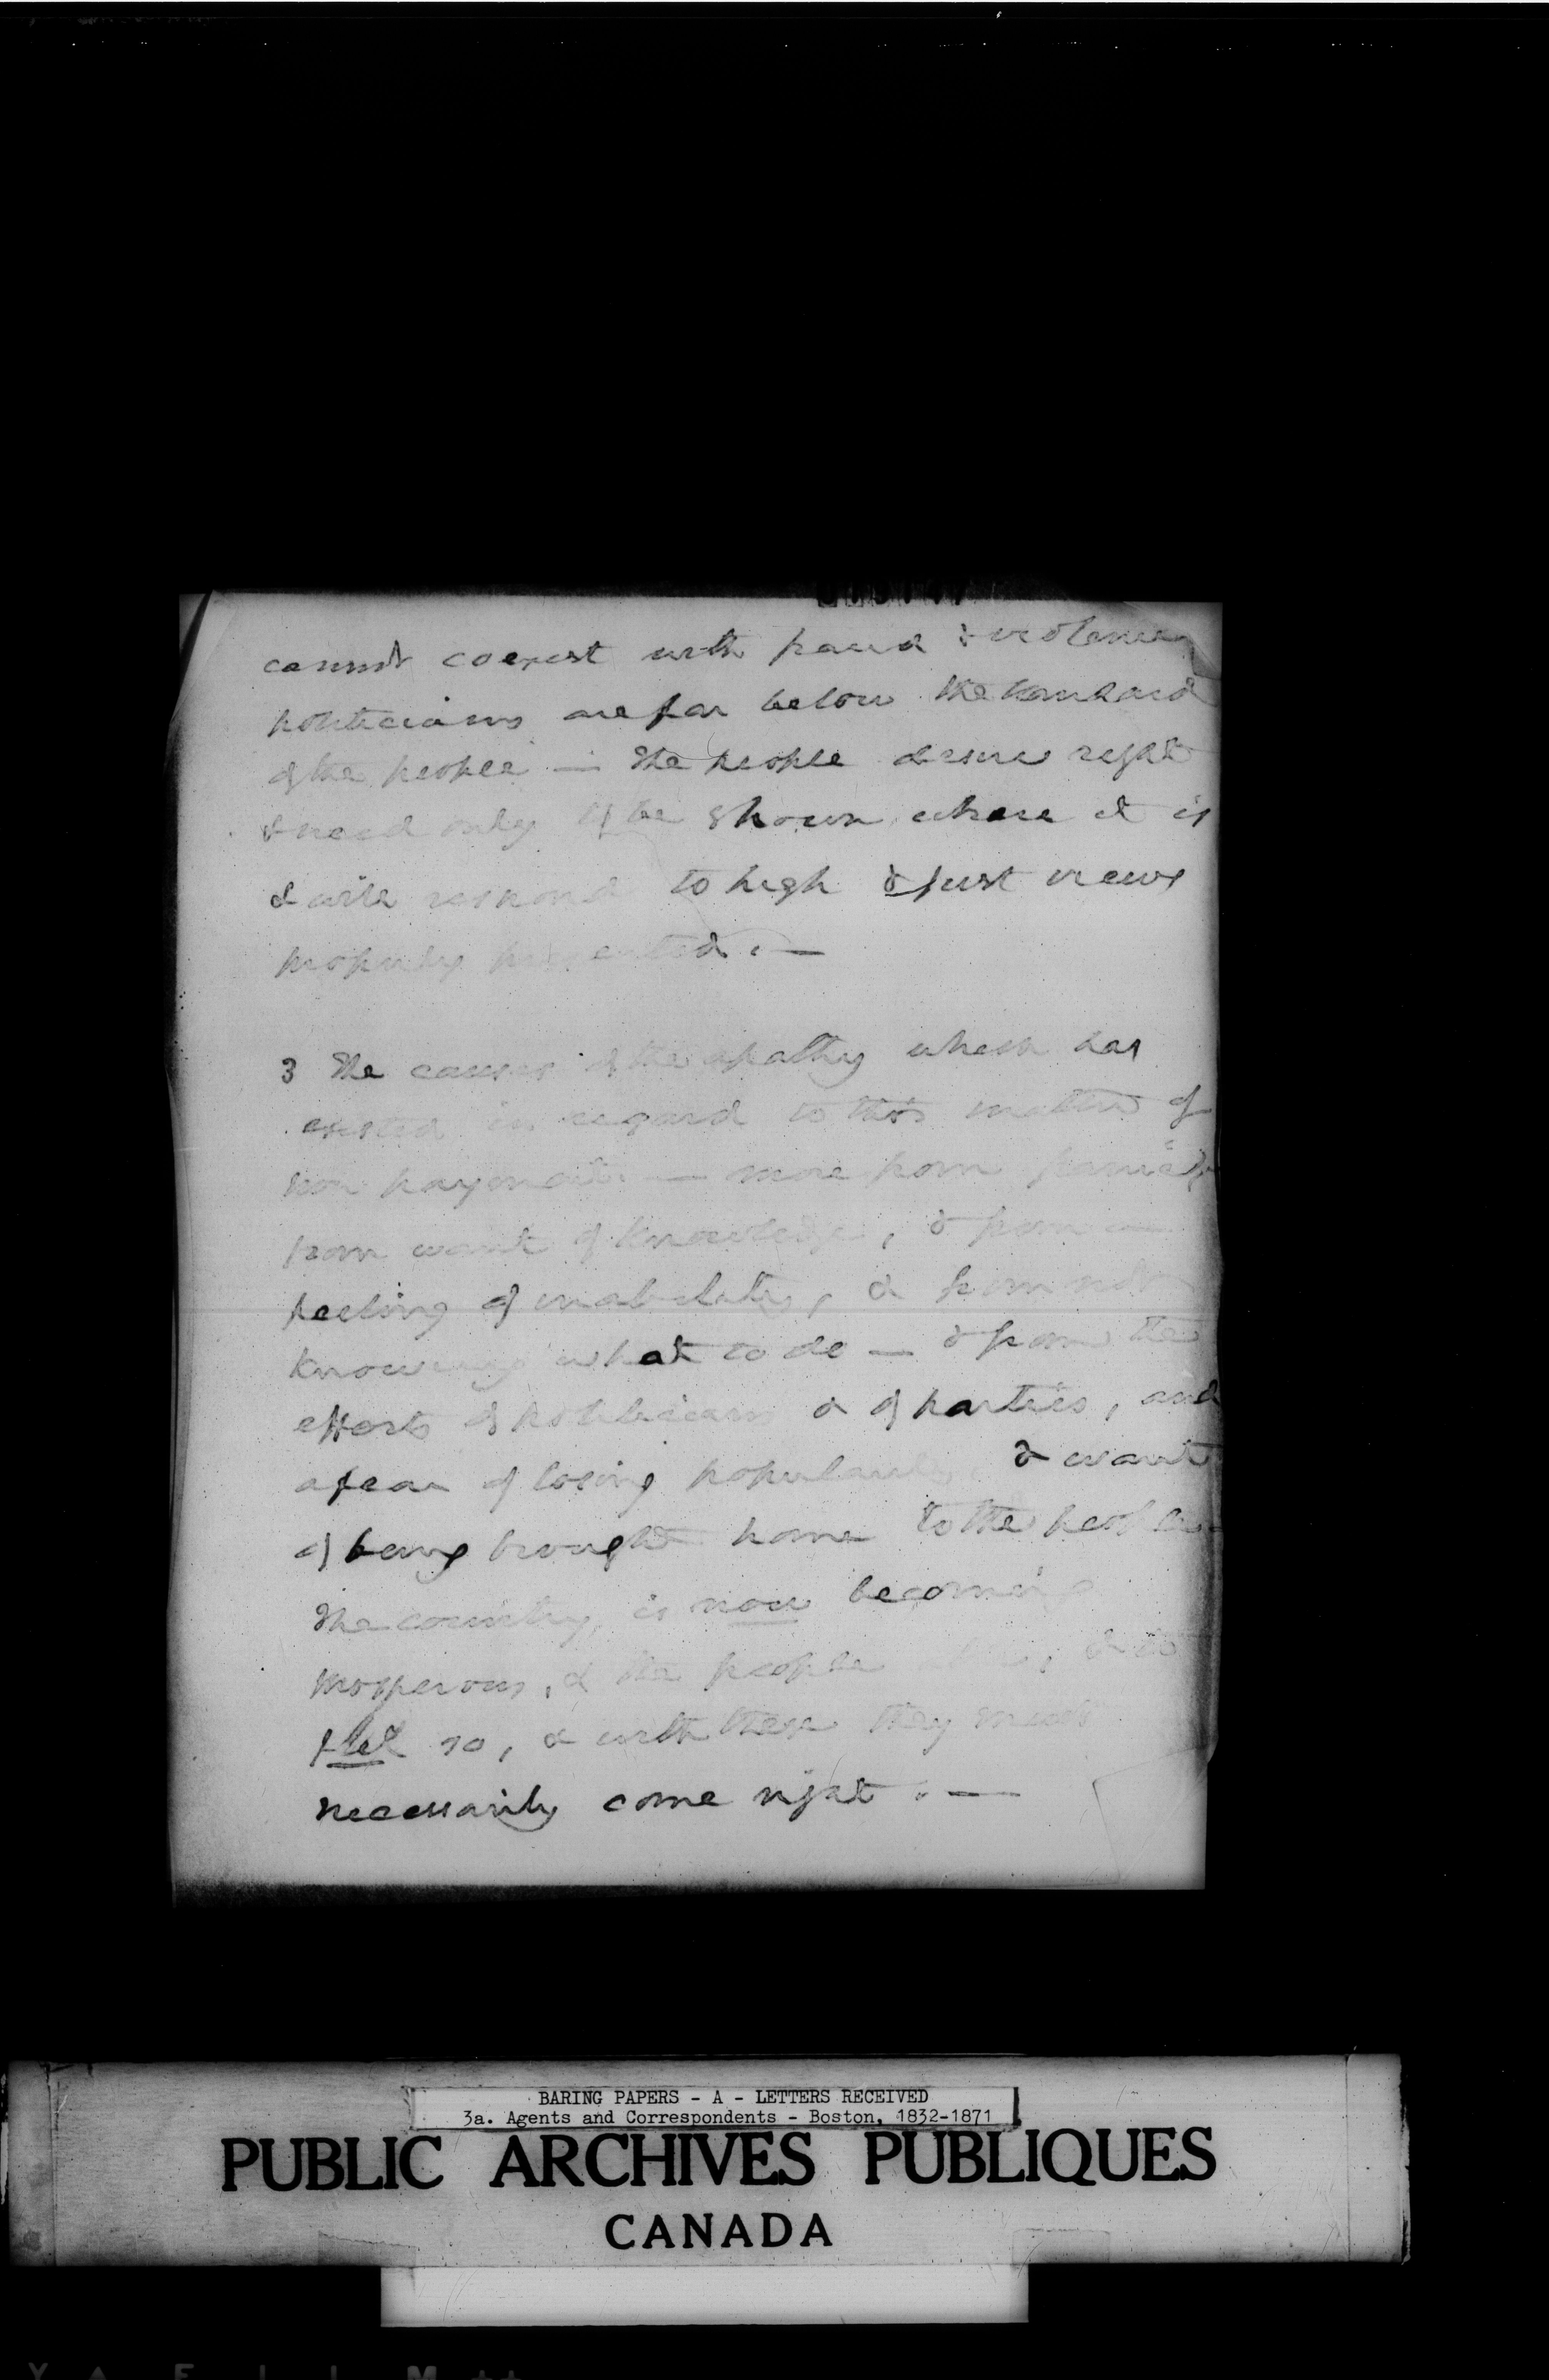 cannot coexist with fraud & violence
politicians are far below the standard
of the people — The people desire right
& need only to be shown where it is
& will respond to high & just views
properly presented. —
3 The causes of the apathy which has
existed in regard to this matter of
non payment. — more from panic &
from want of knowledge, & from a
feeling of inability, & from not
knowing what to do — & from the
efforts of politicians & of parties, and
a fear of losing popularity & want
of being brought home to the people
The country is now becoming
prosperous, & the people
feel so, & with these they must
necessarily come right. —
BARING PAPERS - A - LETTERS RECEIVED
3a. Agents and Correspondents - Boston, 1832-1871
PUBLIC ARCHIVES PUBLIQUES
CANADA